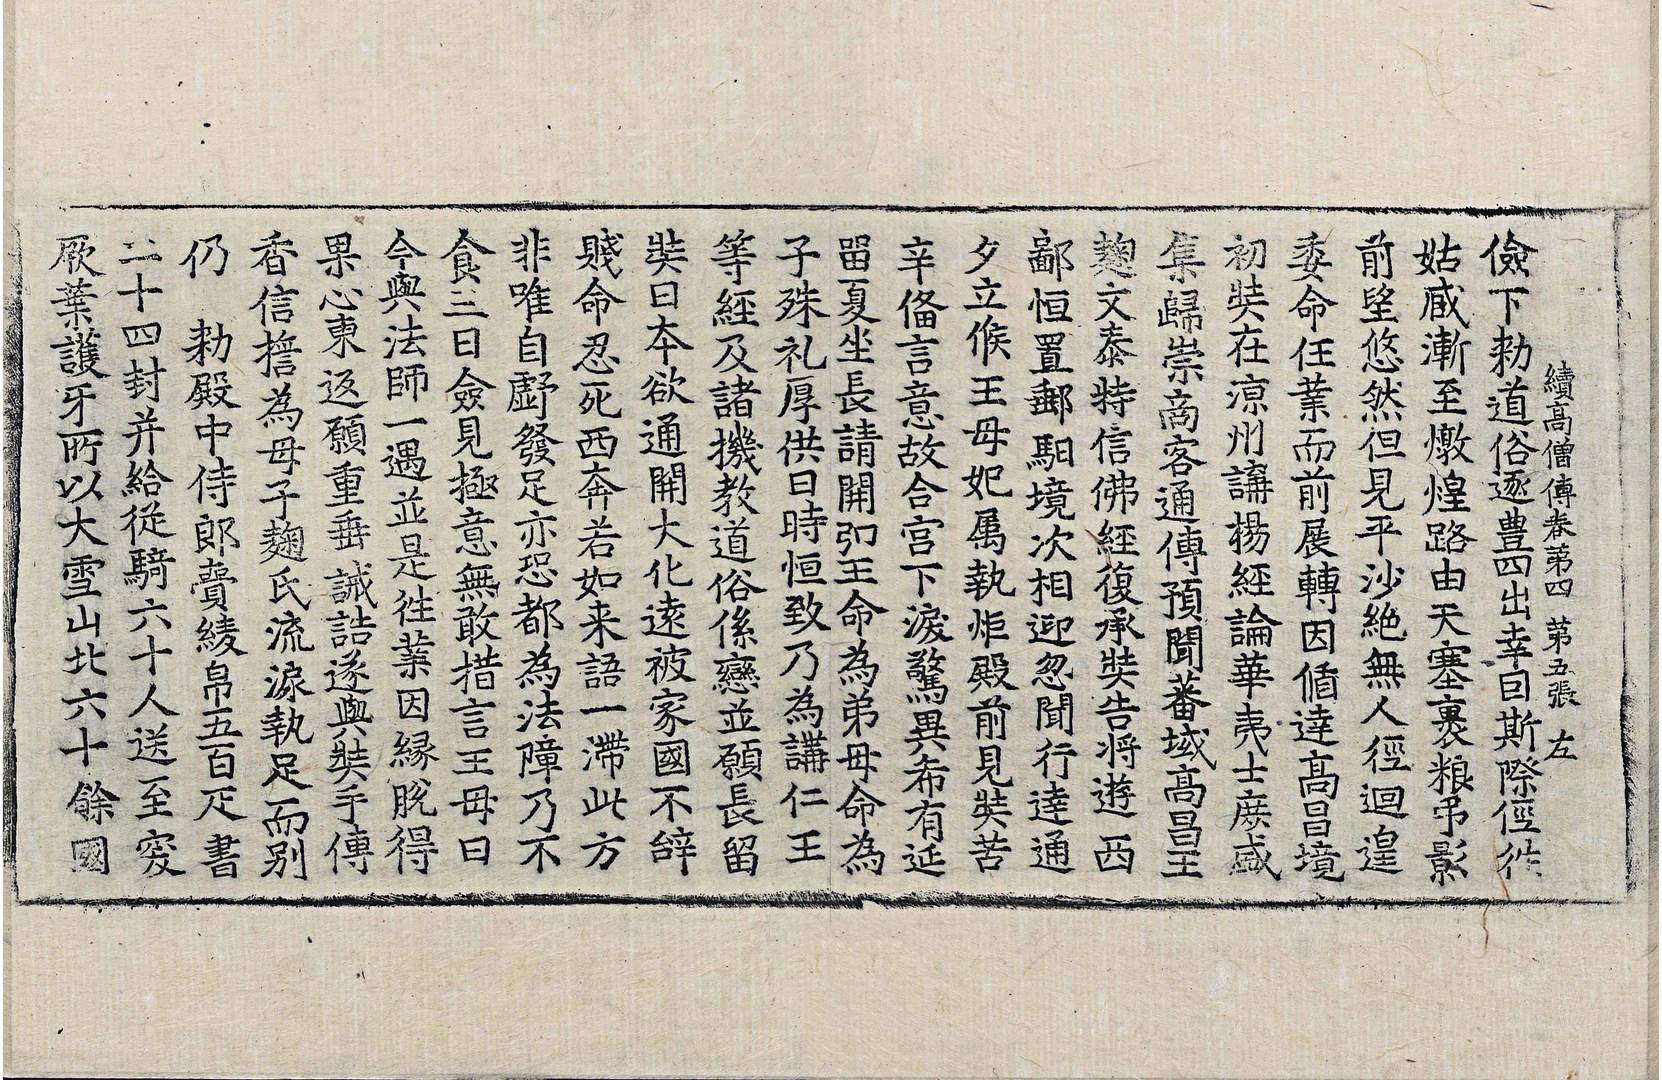 續高僧傳卷第四 第五張 左
儉下勑道俗逐豊四出幸因斯際徑往
姑臧漸至燉煌路由天塞裹粮弔影
前望悠然但見平沙絶無人徑迴遑
委命任業而前展轉因循達高昌境
初奘在涼州講揚經論華夷士庶盛
集歸崇商客通傳預聞蕃域高昌王
麴文泰特信佛經復承奘告將遊西
鄙恒置郵馹境次相迎忽聞行達通
夕立候王母妃属執炬殿前見奘苦
辛俻言意故合宫下淚驚異希有延
留夏坐長請開弘王命為弟母命為
子殊礼厚供日時恒致乃為講仁王
等經及諸機教道俗係戀並願長留
奘曰本欲通開大化遠被家國不辝
賤命忍死西奔若如来語一滯此方
非唯自虧發足亦恐都為法障乃不
食三日僉見極意無敢措言王母曰
今與法師一遇並是徃業因縁脫得
果心東返願重垂誡誥遂與奘手傳
香信誓為母子麴氏流淚執足而别
仍 勑殿中侍郎賷綾帛五百疋書
二十四封并給從騎六十人送至突
厥葉護牙所以大雪山北六十餘國